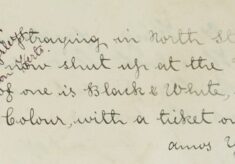 straying in North St
now shut up at the
of one is Black & White,
Colour, with a ticket on
amos